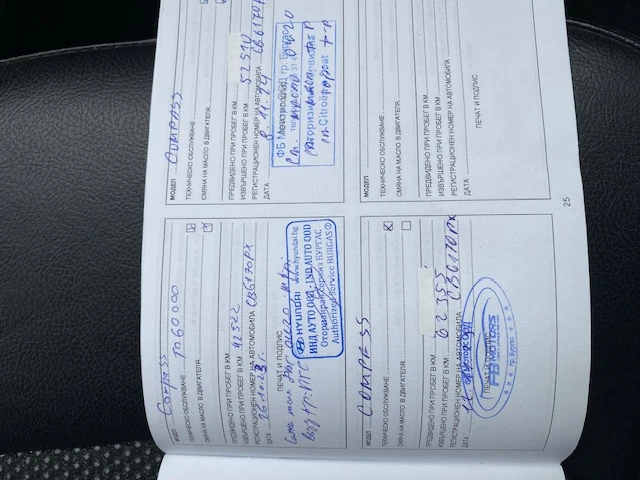 МОДЕЛ Compass
ТЕХНИЧЕСКО ОБСЛУЖВАНЕ TO60000
СМЯНА НА МАСЛО В ДВИГАТЕЛЯ
ПРЕДВИДЕНО ПРИ ПРОБЕГ В КМ
ИЗВЪРШЕНО ПРИ ПРОБЕГ В КМ 42522
РЕГИСТРАЦИОНЕН НОМЕР НА АВТОМОБИЛА CB6170PX
ДАТА 26.10.23г.
ПЕЧАТ И ПОДПИС
HYUNDAI www.hyundai.bg
ИНД АУТО ООД - IND AUTO OOD
Оторизиран сервиз БУРГАС
Authorized service BURGAS
МОДЕЛ COMPASS
ТЕХНИЧЕСКО ОБСЛУЖВАНЕ
СМЯНА НА МАСЛО В ДВИГАТЕЛЯ
ПРЕДВИДЕНО ПРИ ПРОБЕГ В КМ
ИЗВЪРШЕНО ПРИ ПРОБЕГ В КМ 52510
РЕГИСТРАЦИОНЕН НОМЕР НА АВТОМОБИЛА CB6170PX
ДАТА 8.11.24
гр. Бургас
Citroën
МОДЕЛ COMPASS
ТЕХНИЧЕСКО ОБСЛУЖВАНЕ
СМЯНА НА МАСЛО В ДВИГАТЕЛЯ
ПРЕДВИДЕНО ПРИ ПРОБЕГ В КМ
ИЗВЪРШЕНО ПРИ ПРОБЕГ В КМ 62355
РЕГИСТРАЦИОНЕН НОМЕР НА АВТОМОБИЛА CB6170PX
ДАТА
ПЕЧАТ И ПОДПИС
FB MOTORS
МОДЕЛ
ТЕХНИЧЕСКО ОБСЛУЖВАНЕ
СМЯНА НА МАСЛО В ДВИГАТЕЛЯ
ПРЕДВИДЕНО ПРИ ПРОБЕГ В КМ
ИЗВЪРШЕНО ПРИ ПРОБЕГ В КМ
РЕГИСТРАЦИОНЕН НОМЕР НА АВТОМОБИЛА
ДАТА
ПЕЧАТ И ПОДПИС
25